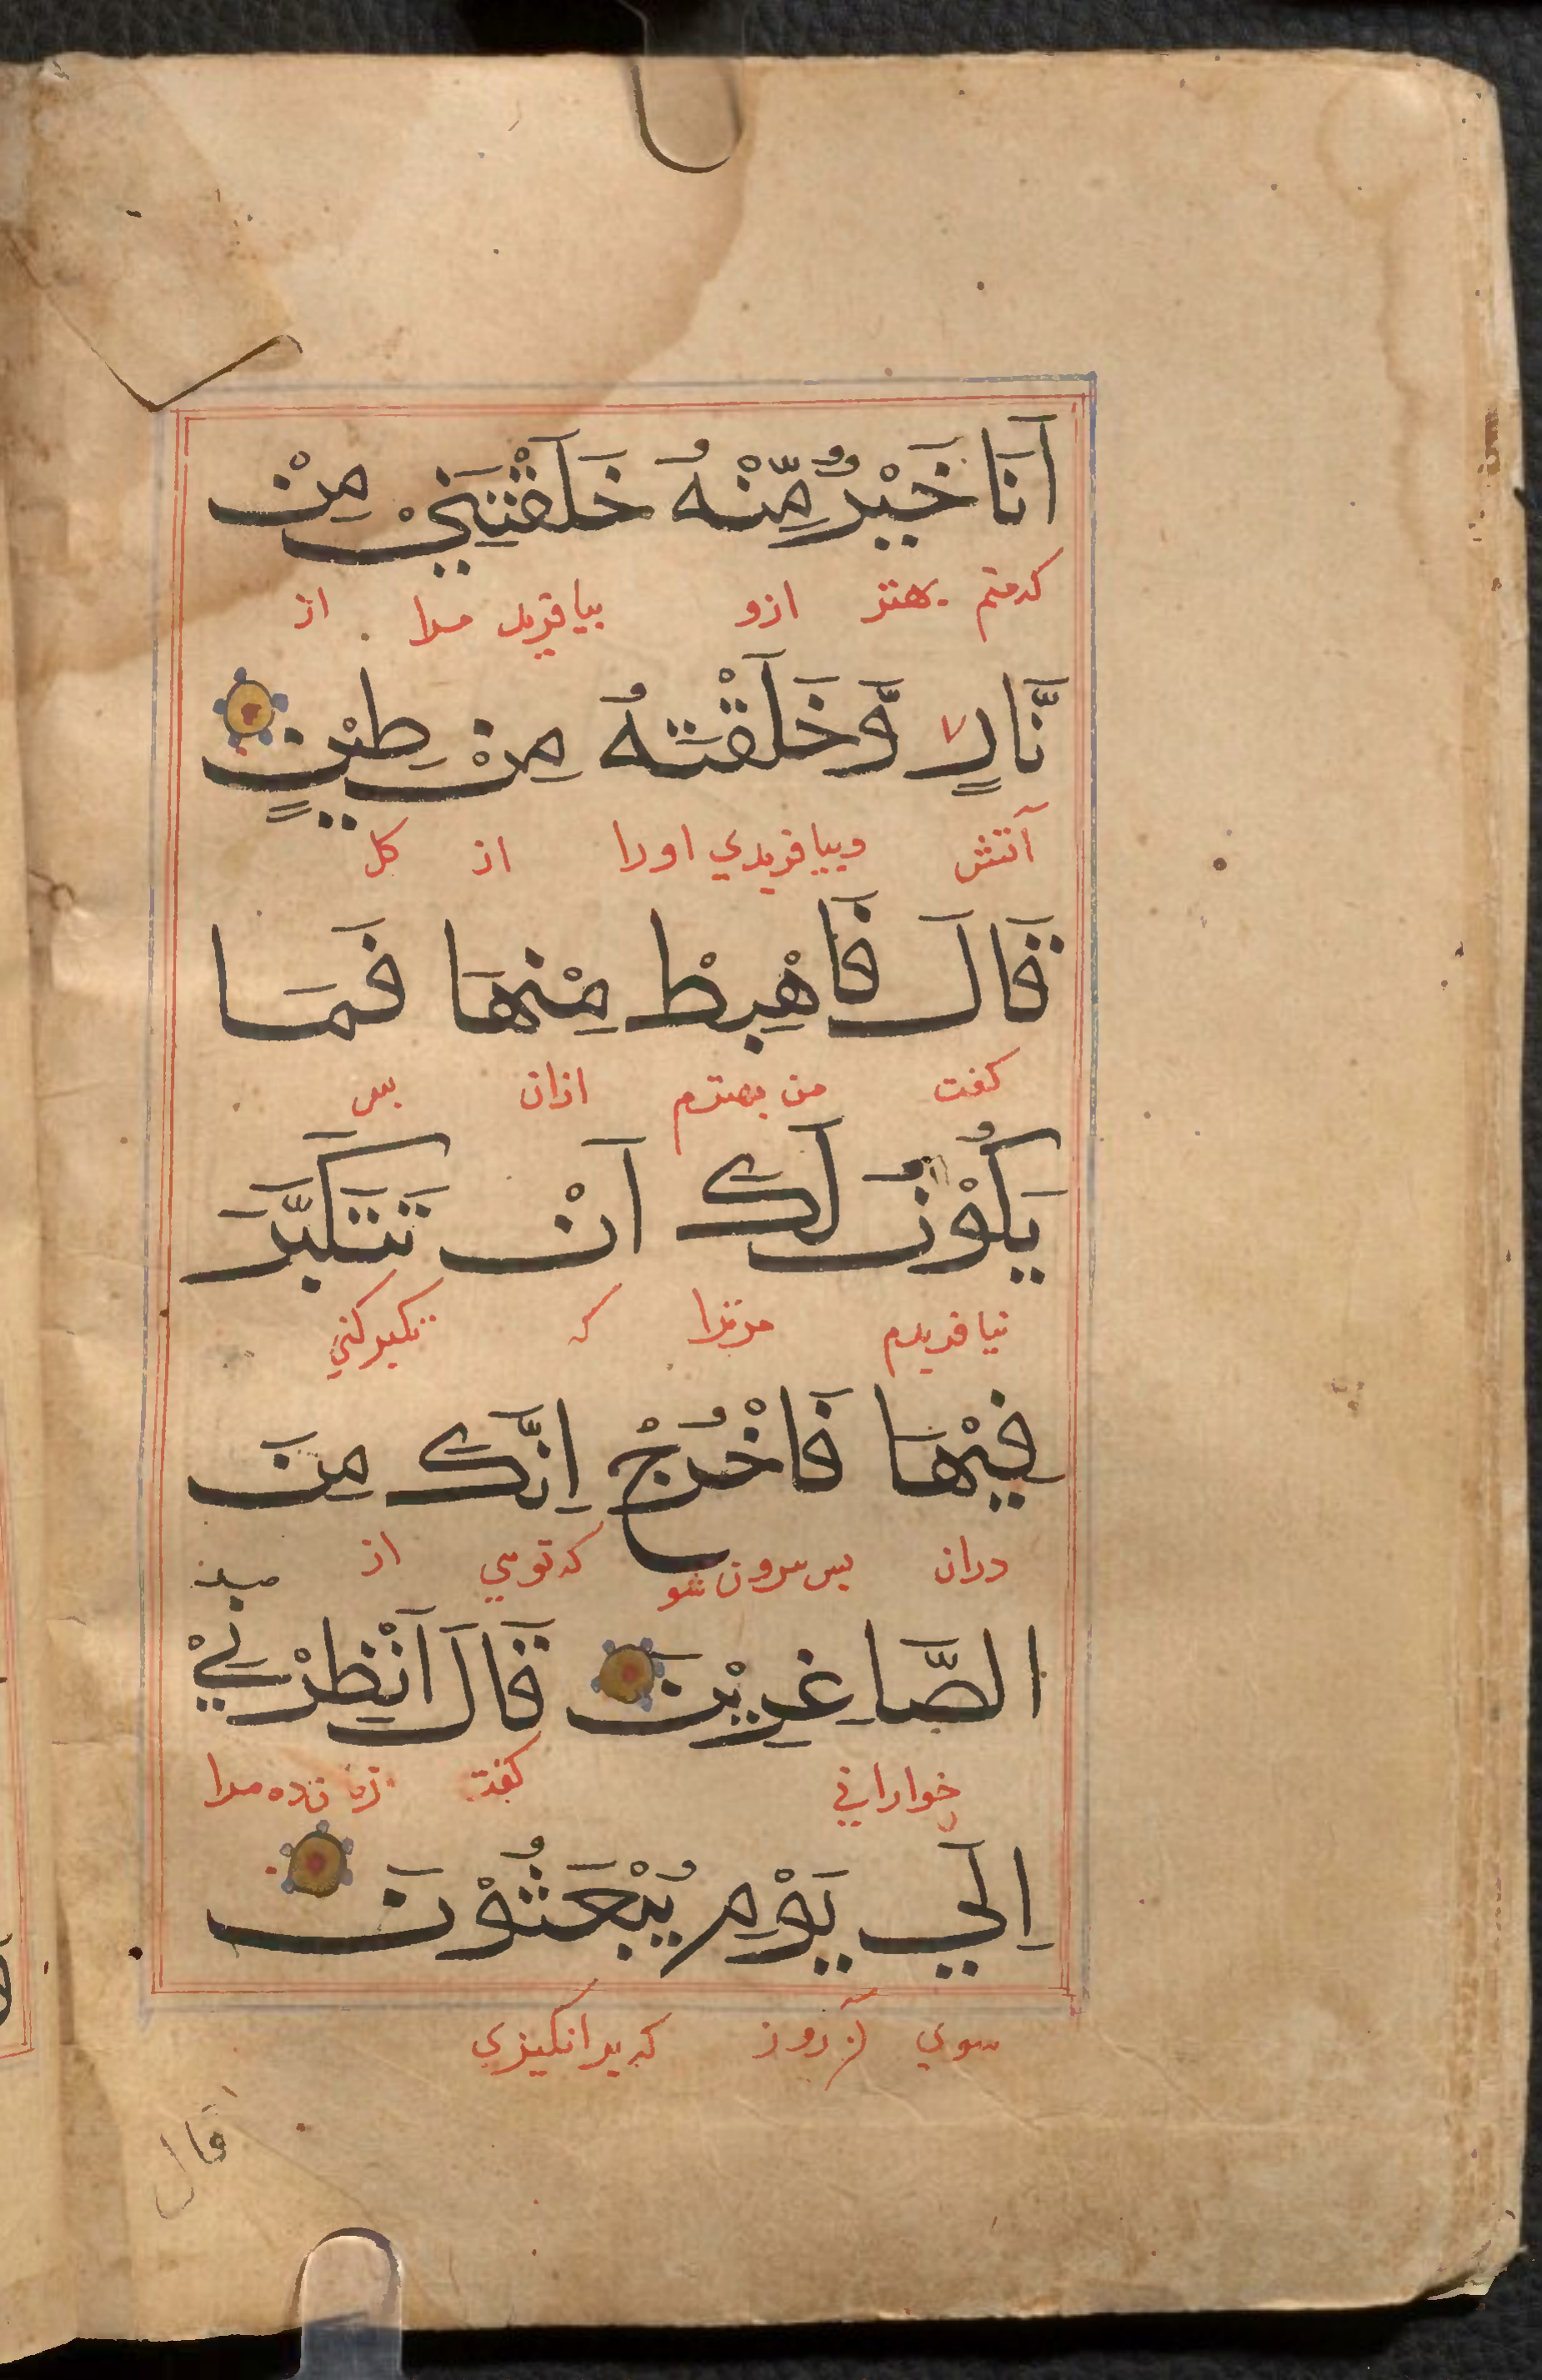 اَنَا خَيْرٌ مِّنْهُ خَلَقْتَنِيْ مِنْ
که منم بهتر ازو بیافرید مرا از
نَّارٍ وَّخَلَقْتَهُ مِنْ طِيْنٍ
آتش وبیافریدي اورا از کل
قَالَ فَاهْبِطْ مِنْهَا فَمَا
کفت من بهترم ازان بس
يَكُوْنُ لَكَ اَنْ تَتَكَبَّرَ
نیافریدم مرترا که تکبر کني
فِيْهَا فَاخْرُجْ اِنَّكَ مِنَ
دران بس بیرون شو که توي از
الصَّاغِرِيْنَ قَالَ اَنْظِرْنِيْ
خواراني کفت زنده مرا
اِلَي يَوْمِ يُبْعَثُوْنَ
سوي آن روز که برانکیزي
قال